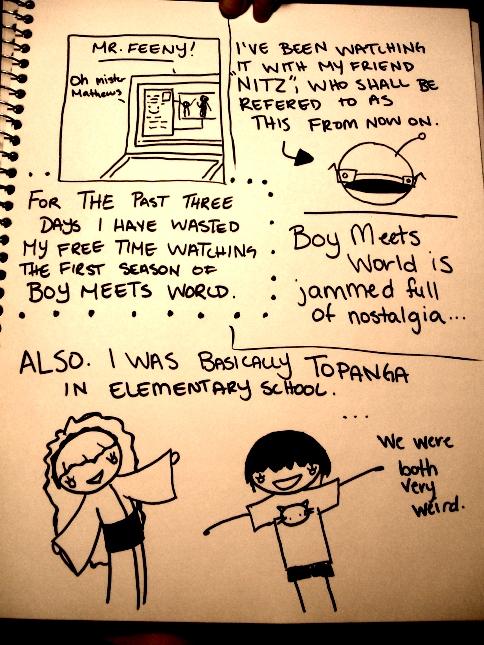 MR. FEENY!
Oh mister
Mathews
FOR THE PAST THREE
DAYS I HAVE WASTED
MY FREE TIME WATCHING
THE FIRST SEASON OF
BOY MEETS WORLD.
I'VE BEEN WATCHING
IT WITH MY FRIEND
"NITZ", WHO SHALL BE
REFERED TO AS
THIS FROM NOW ON.
Boy Meets
World is
jammed full
of nostalgia...
ALSO. I WAS BASICALLY TOPANGA
IN ELEMENTARY SCHOOL.
...
We were
both
very
weird.